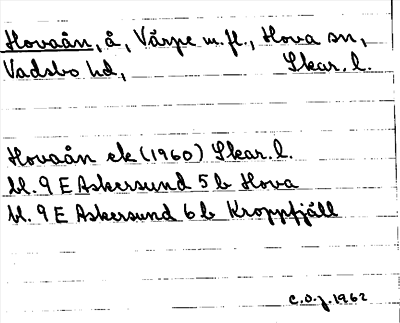 Hovaån, å, Värpe m.fl., Hova sn,
Vadsbo hd, Skar. l.
Hovaån ek (1960) Skar. l.
bl. 9 E Askersund 5 b Hova
bl. 9 E Askersund 6 b Kroppfjäll
C.O.J. 1962